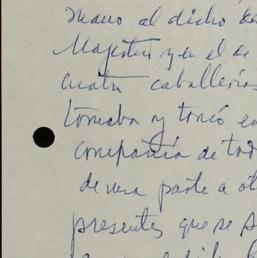 mano al dicho
Majestad y en el de
cuatro caballerías
tomaba y tomó en
compañía de tod
de una parte a ot
presentes que se p